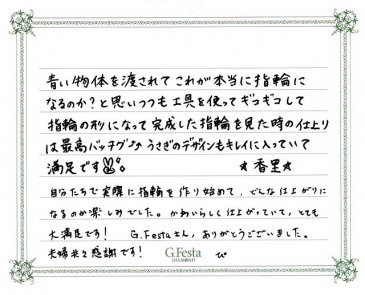 青い物体を渡されてこれが本当に指輪に
なるのか?と思いつつも工具を使ってギコギコして
指輪の形になって完成した指輪を見た時の仕上り
は最高バッチグー うさぎのデザインもキレイに入っていて
満足です ☆香里☆
自分たちで実際に指輪を作り始めて、どんな仕上がりに
なるのか楽しみでした。かわいらしく仕上がっていて、とても
大満足です! G.Festaさん、ありがとうございました。
夫婦共々感謝です!
G.Festa
DIAMOND